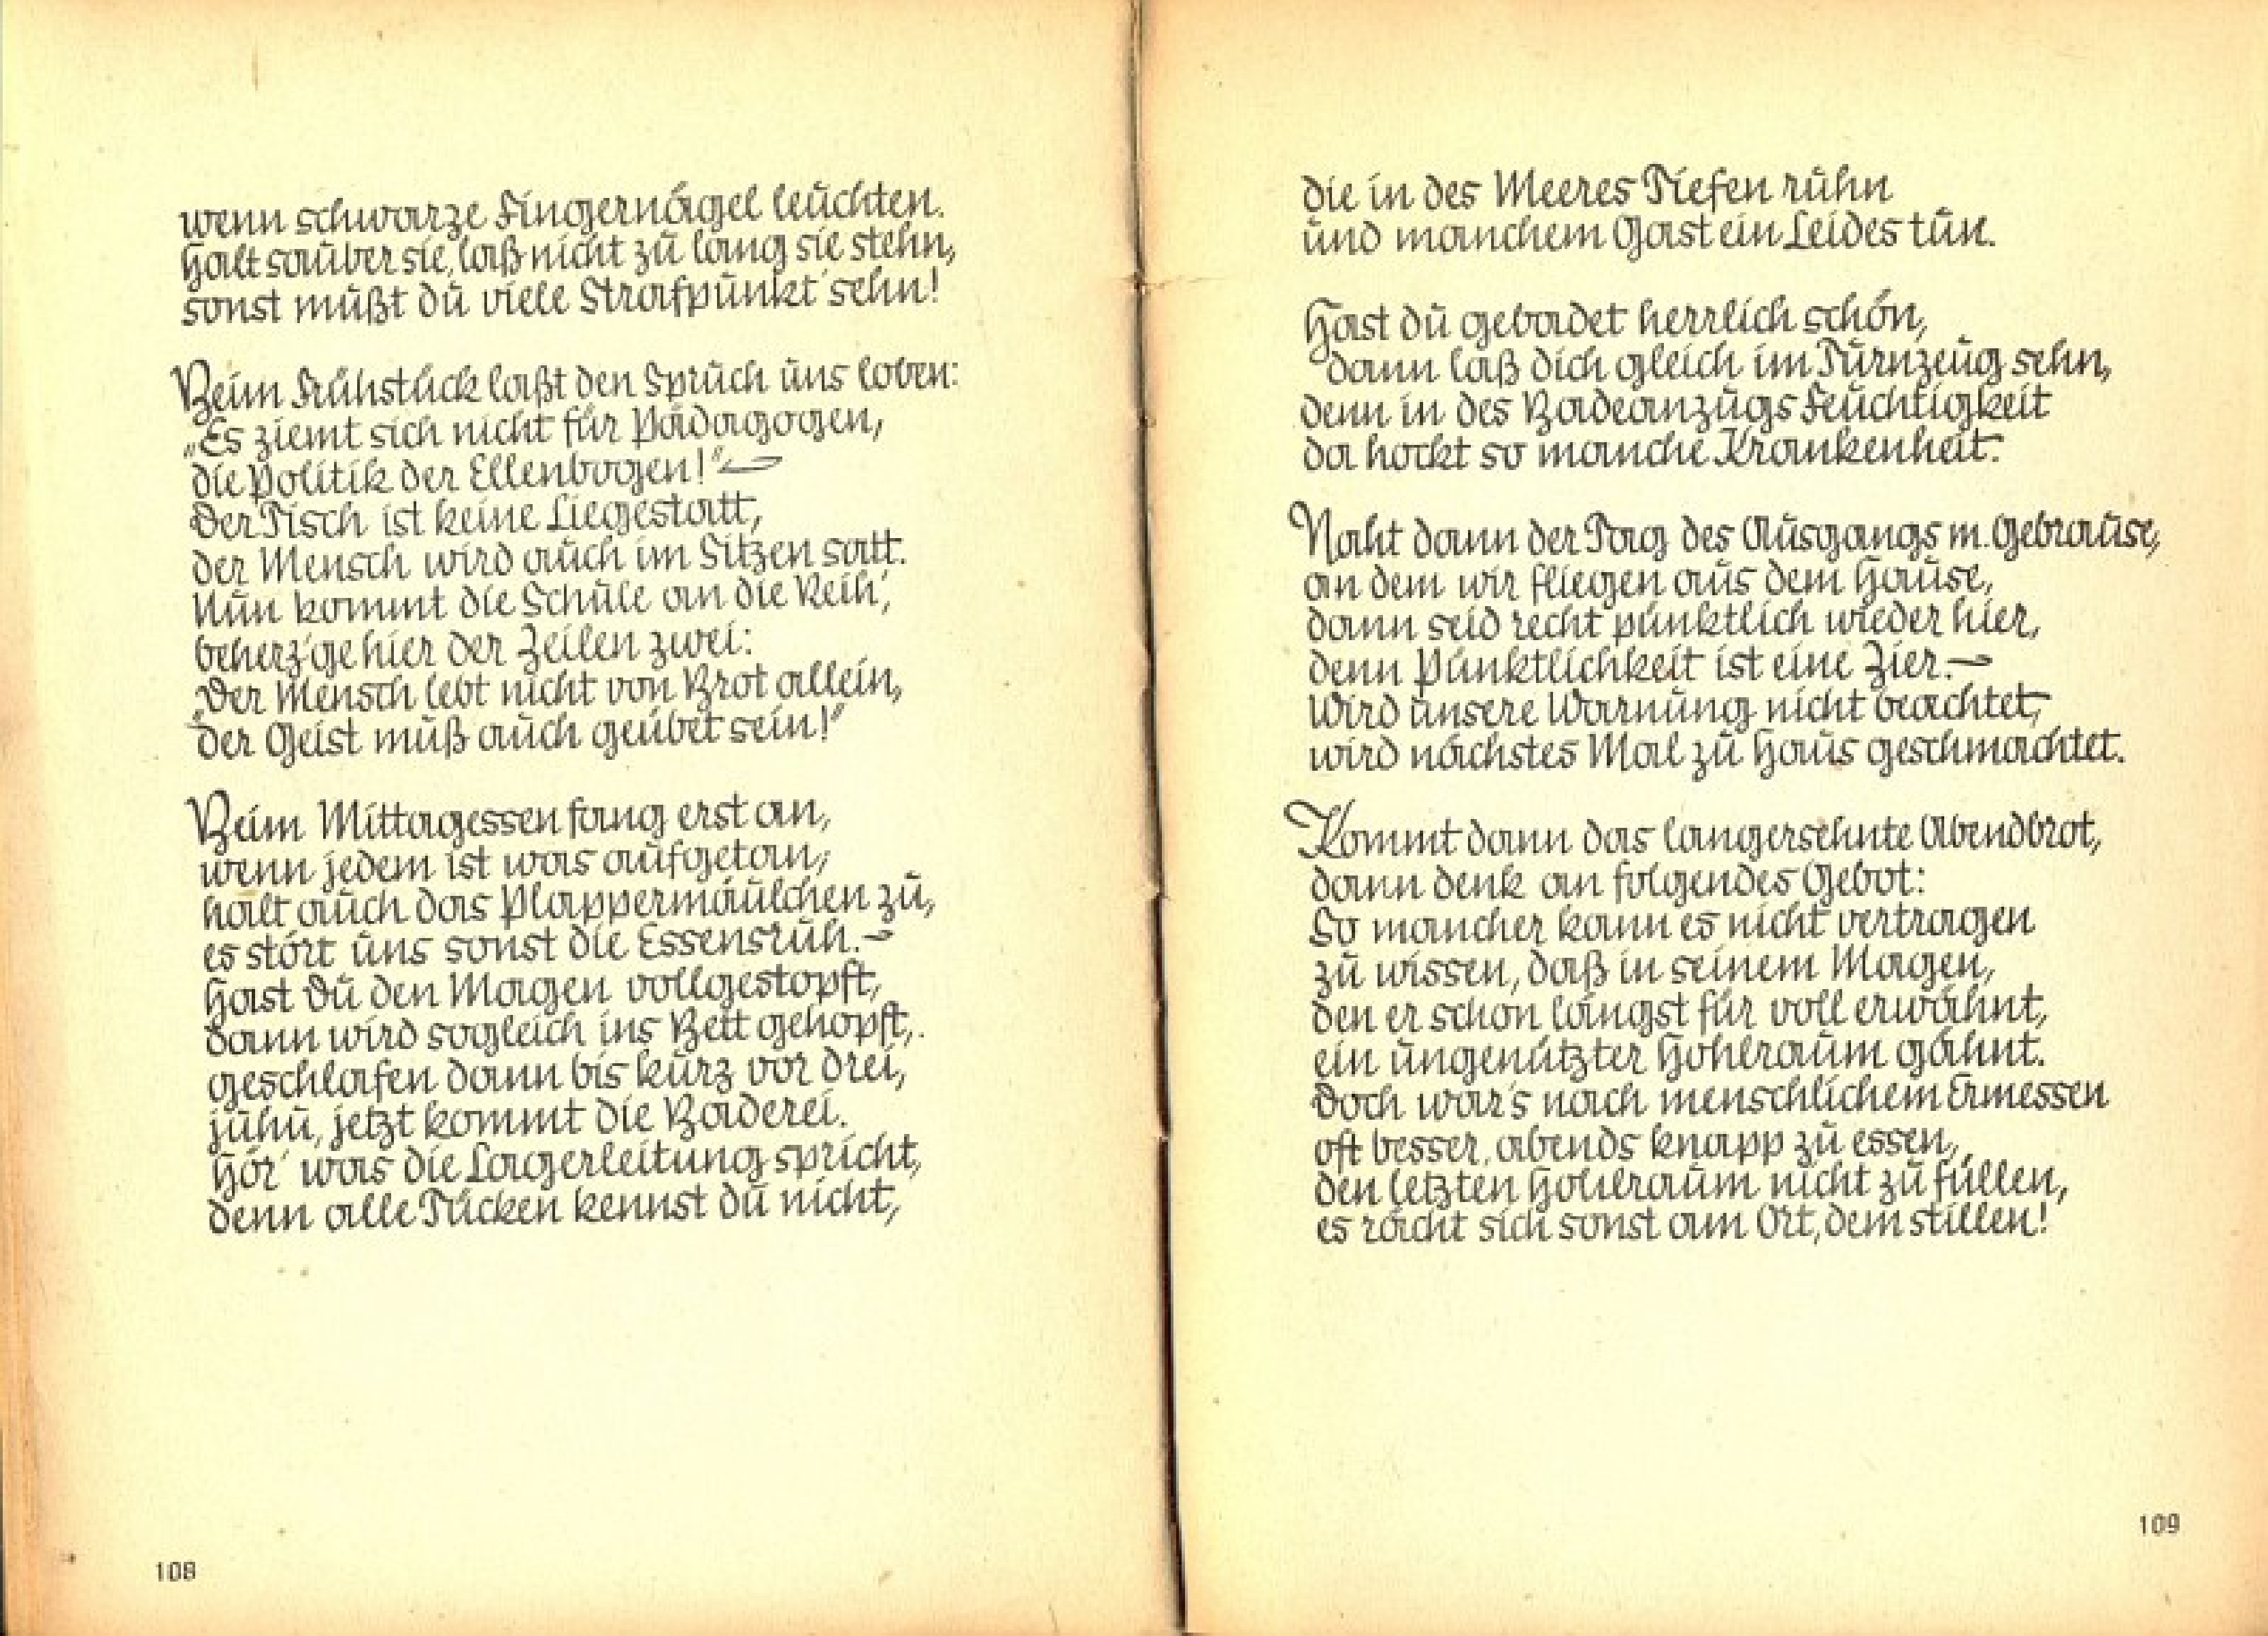 wenn schwarze Fingernägel leuchten.
Halt sauber sie, laß nicht zu lang sie stehn,
sonst mußt du viele Strafpunkt' sehn!
Beim Frühstück laßt den Spruch uns loben:
„Es ziemt sich nicht für Pädagogen,
die Politik der Ellenbogen!“ –
Der Tisch ist keine Liegestatt,
der Mensch wird auch im Sitzen satt.
Nun kommt die Schule an die Reih',
beherz'ge hier der Zeilen zwei:
„Der Mensch lebt nicht von Brot allein,
der Geist muß auch geübet sein!“
Beim Mittagessen fang erst an,
wenn jedem ist was aufgetan,
halt auch das Plappermäulchen zu,
es stört uns sonst die Essensruh. –
Hast Du den Magen vollgestopft,
dann wird sogleich ins Bett gehopft,
geschlafen dann bis kurz vor drei,
juhu, jetzt kommt die Baderei.
Hör' was die Lagerleitung spricht,
denn alle Tücken kennst du nicht,
108
die in des Meeres Tiefen ruhn
und manchem Gast ein Leides tun.
Hast du gebadet herrlich schön,
dann laß dich gleich im Turnzeug sehn,
denn in des Badeanzugs Feuchtigkeit
da hockt so manche Krankenheit.
Naht dann der Tag des Ausgangs m. Gebrause,
an dem wir fliegen aus dem Hause,
dann seid recht pünktlich wieder hier,
denn Pünktlichkeit ist eine Zier. –
Wird unsere Warnung nicht beachtet,
wird nächstes Mal zu Haus geschmachtet.
Kommt dann das langersehnte Abendbrot,
dann denk an folgendes Gebot:
So mancher kann es nicht vertragen
zu wissen, daß in seinem Magen,
den er schon längst für voll erwähnt,
ein ungenützter Hohlraum gähnt.
Doch wär's nach menschlichem Ermessen
oft besser, abends knapp zu essen,
den letzten Hohlraum nicht zu füllen,
es rächt sich sonst am Ort, dem stillen!
109